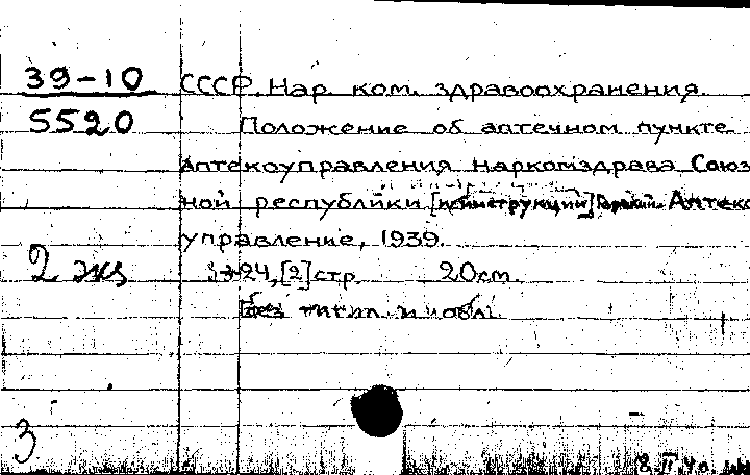 39-10
5520
СССР. Нар. ком. здравоохранения.
Положение об аптечном пункте
Аптекоуправления Наркомздрава Союз
ной республики [и инструкции] Аптеко
управление, 1939.
2 экз
24, [2] стр. 20 см.
без титул. и обл.
3